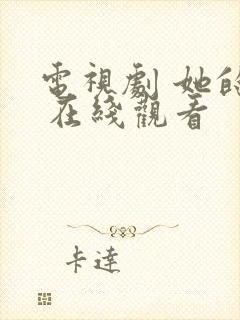 電視劇 她的
在綫觀看
卡達